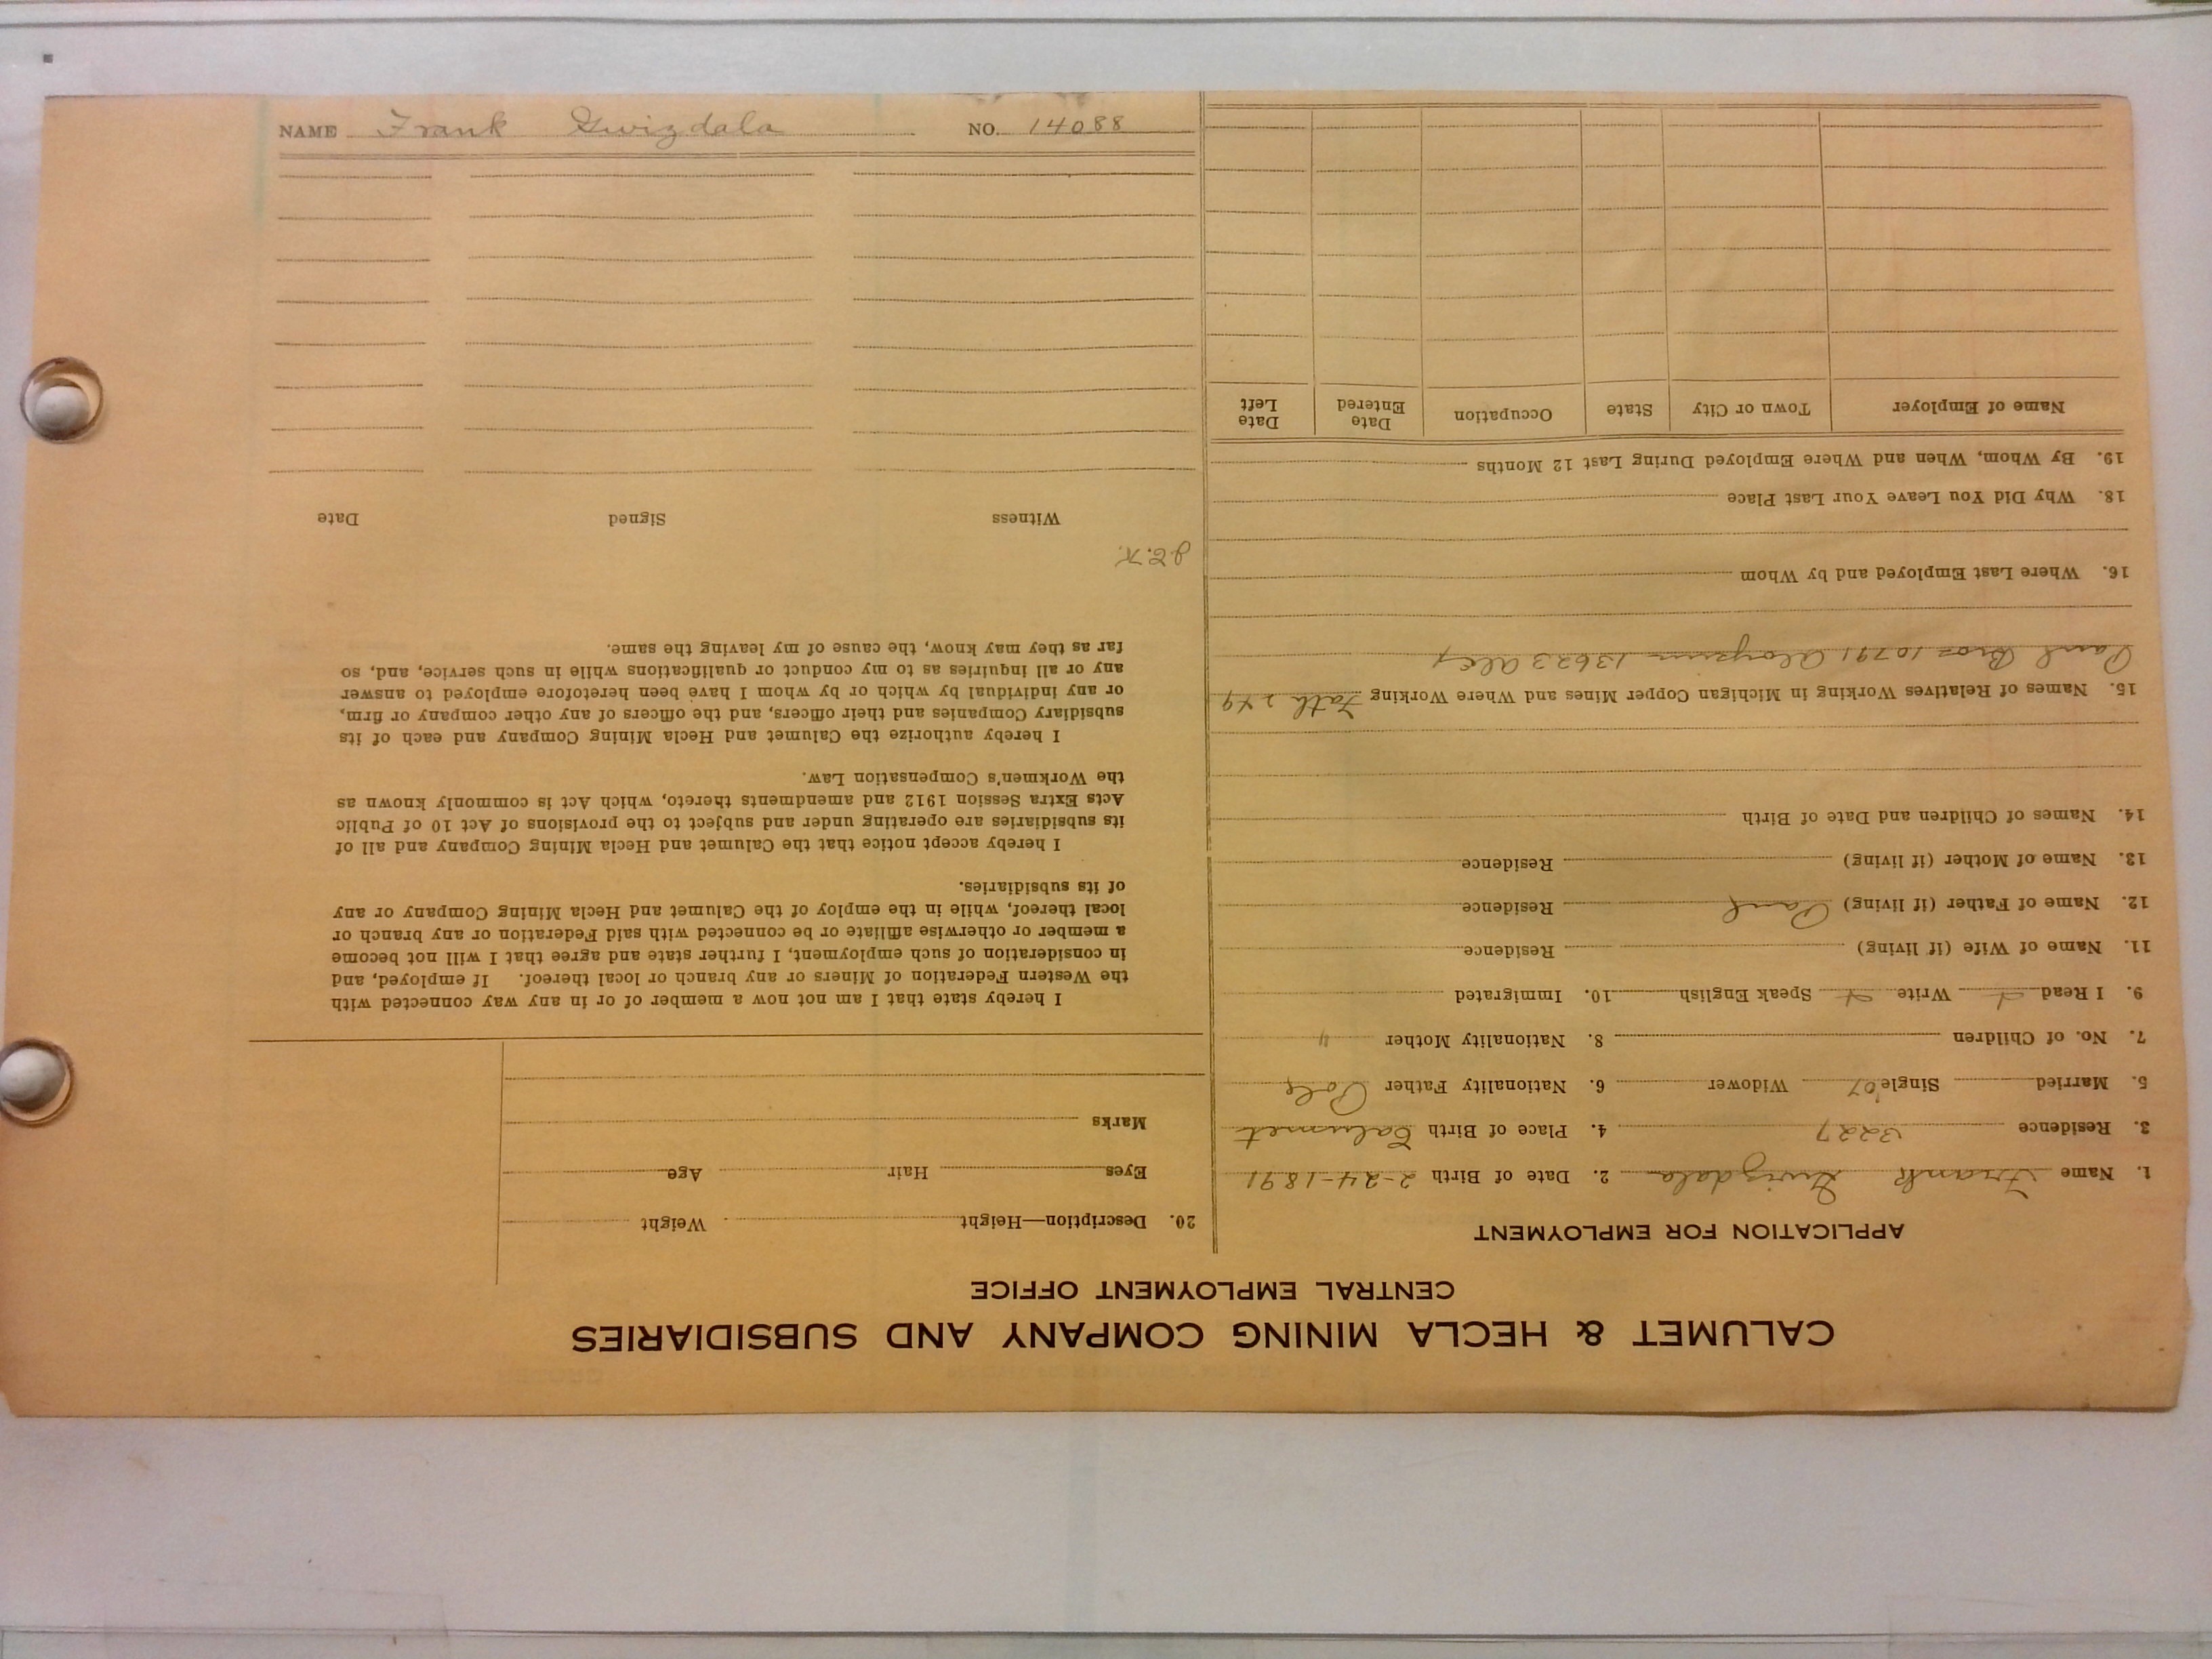 NAME Frank Gwizdala NO. 14088
CALUMET & HECLA MINING COMPANY AND SUBSIDIARIES
CENTRAL EMPLOYMENT OFFICE
APPLICATION FOR EMPLOYMENT
1. Name Frank Gwizdala 2. Date of Birth 2-24-1891
3. Residence 3227 4. Place of Birth Calumet
5. Married Single '07 Widower 6. Nationality Father Pole
7. No. of Children 8. Nationality Mother "
9. I Read Write Speak English 10. Immigrated
11. Name of Wife (if living) Residence
12. Name of Father (if living) Paul Residence
13. Name of Mother (if living) Residence
14. Names of Children and Date of Birth
15. Names of Relatives Working in Michigan Copper Mines and Where Working Fath 249
Paul Bro= 10791 13623 Alex
16. Where Last Employed and by Whom
18. Why Did You Leave Your Last Place
19. By Whom, When and Where Employed During Last 12 Months
Name of Employer Town or City State Occupation Date Entered Date Left
20. Description—Height Weight
Eyes Hair Age
Marks
I hereby state that I am not now a member of or in any way connected with
the Western Federation of Miners or any branch or local thereof. If employed, and
in consideration of such employment, I further state and agree that I will not become
a member or otherwise affiliate or be connected with said Federation or any branch or
local thereof, while in the employ of the Calumet and Hecla Mining Company or any
of its subsidiaries.
I hereby accept notice that the Calumet and Hecla Mining Company and all of
its subsidiaries are operating under and subject to the provisions of Act 10 of Public
Acts Extra Session 1912 and amendments thereto, which Act is commonly known as
the Workmen's Compensation Law.
I hereby authorize the Calumet and Hecla Mining Company and each of its
subsidiary Companies and their officers, and the officers of any other company or firm,
or any individual by which or by whom I have been heretofore employed to answer
any or all inquiries as to my conduct or qualifications while in such service, and, so
far as they may know, the cause of my leaving the same.
J.E.K.
Witness Signed Date